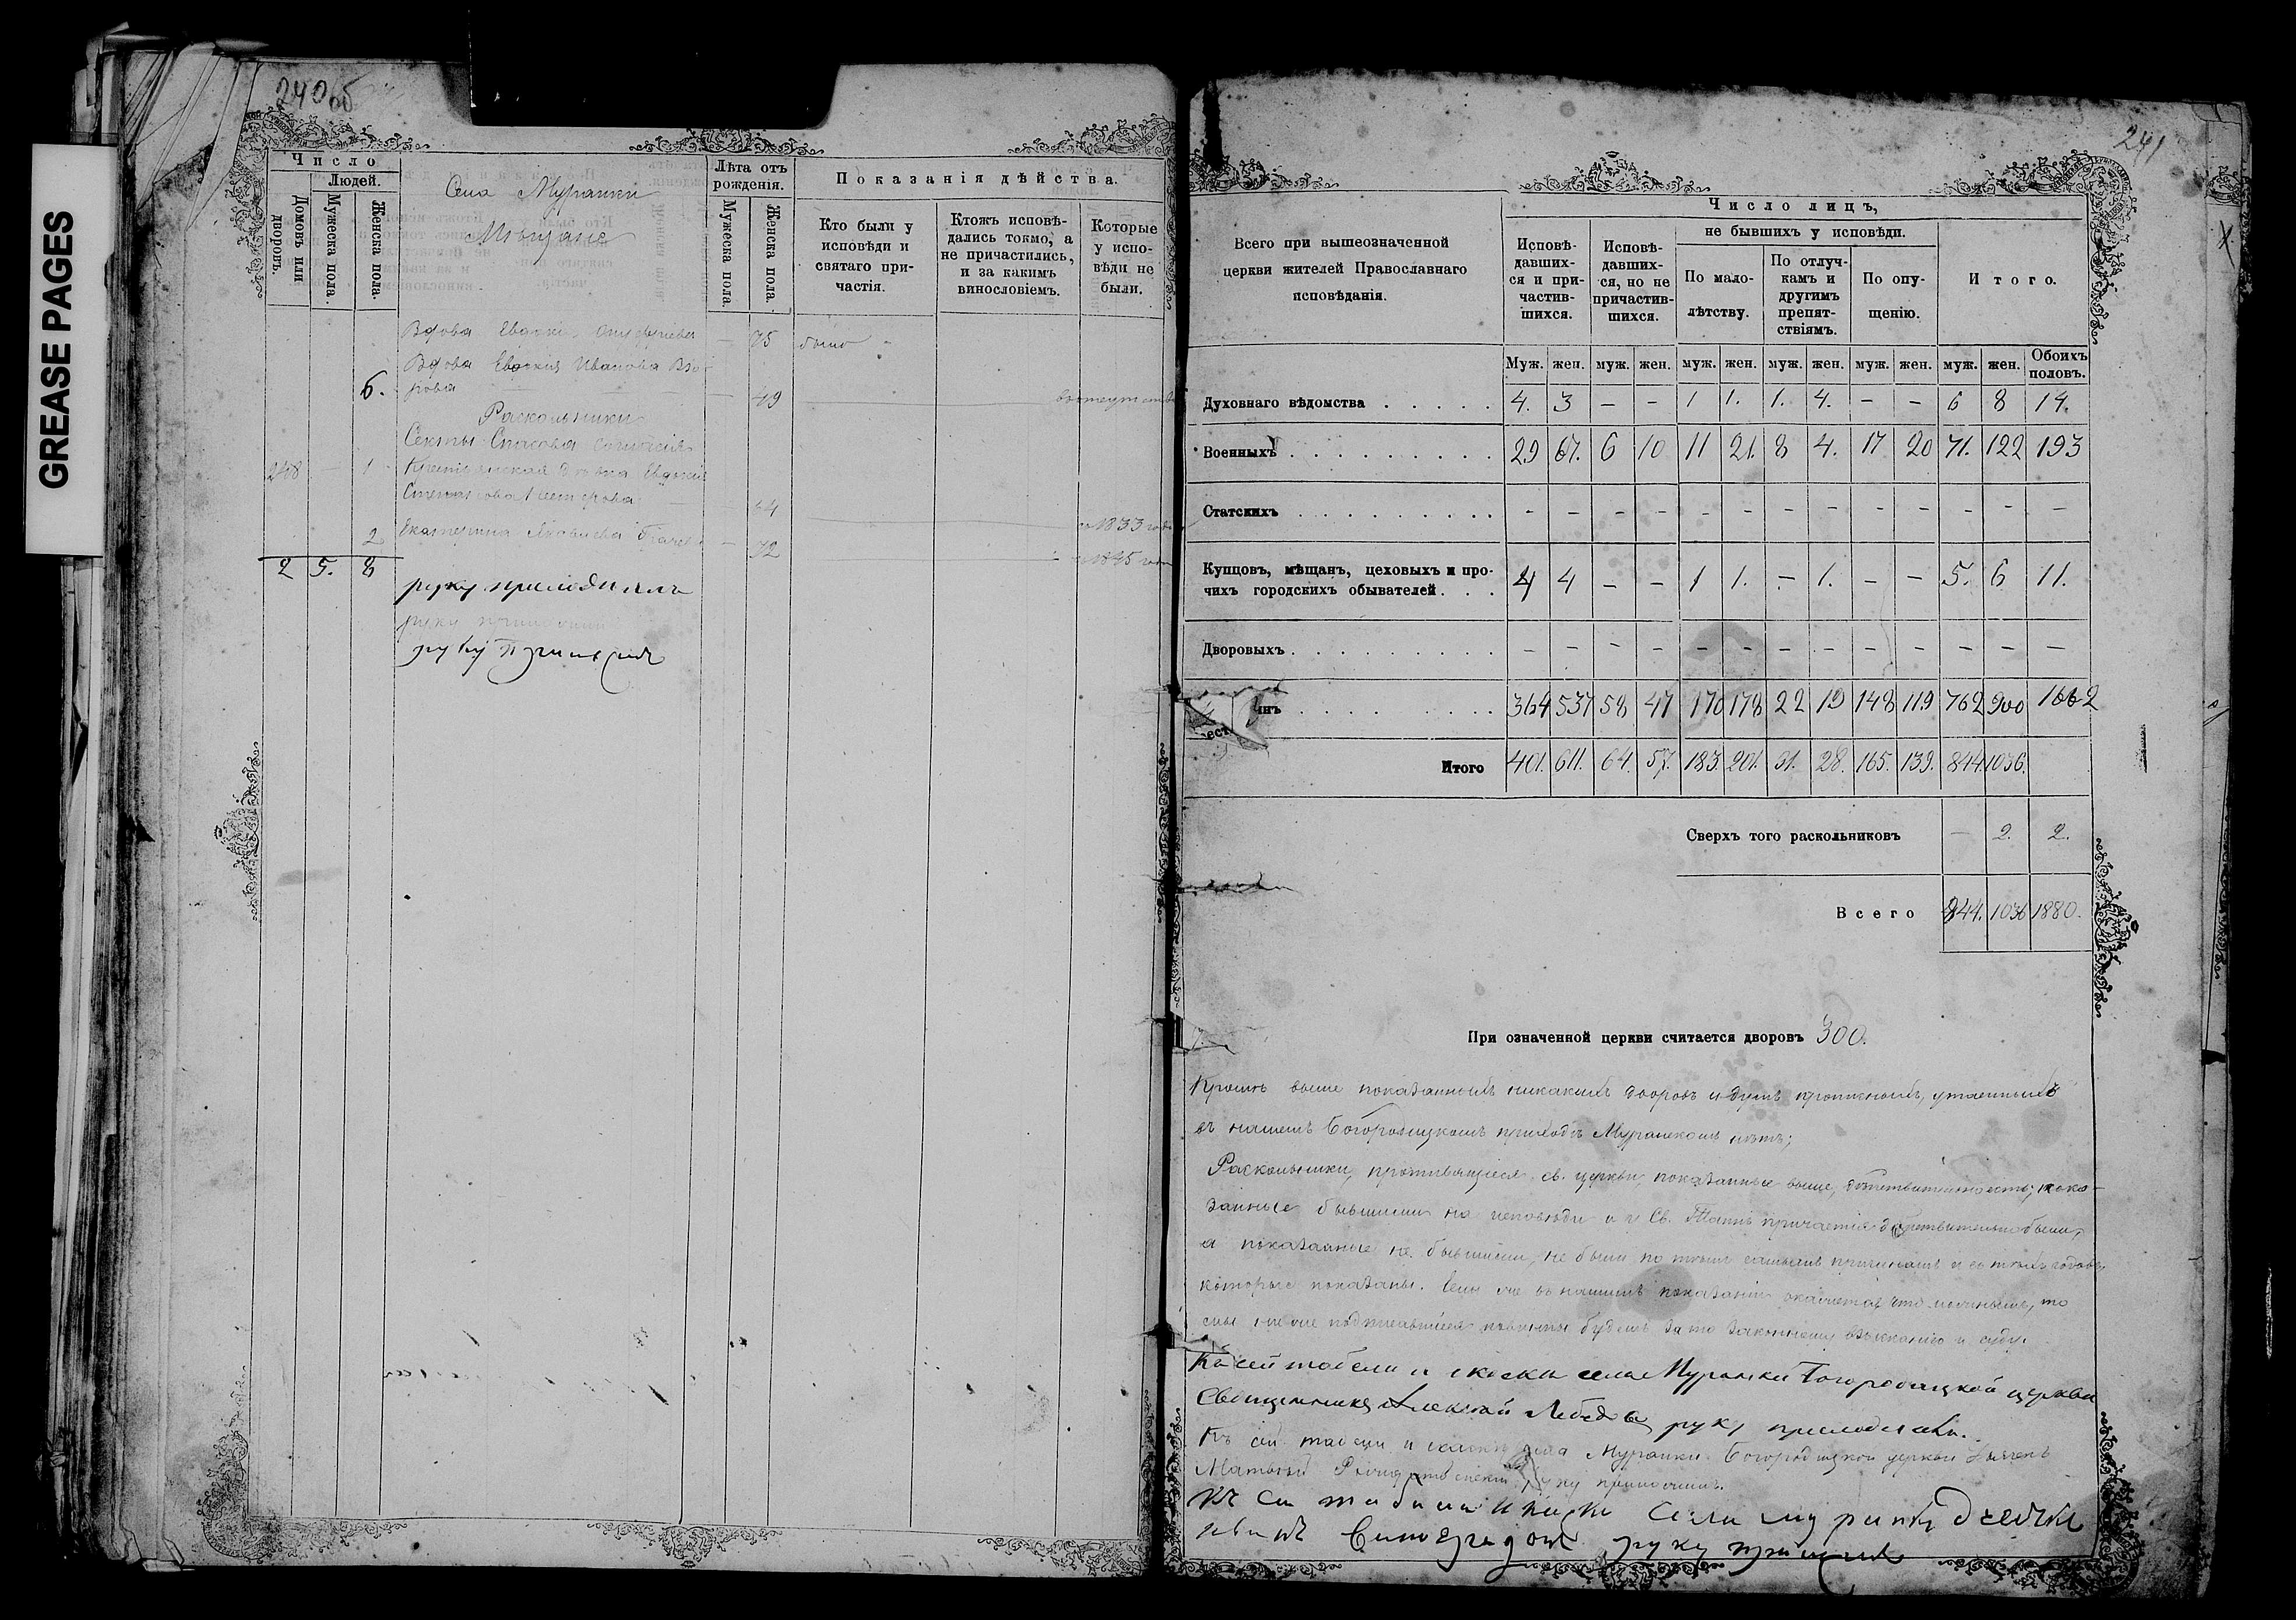 GREASE PAGES
240об
Число
Людей.
Домовъ или дворовъ.
Мужеска пола.
Женска пола.
Села Муранки
Мѣщане
Лѣта отъ рожденія.
Мужеска пола.
Женска пола.
Показанія дѣйства.
Кто были у исповѣди и святаго причастія.
Ктожъ исповѣдались токмо, а не причастились, и за какимъ винословіемъ.
Которые у исповѣди не были.
Вдова Евдокія — 75 была
Вдова Евдокія Иванова
6. — 49
Раскольники
Секты Спасова согласія
248 — 1 Крестьянская дѣвка Евдокія
Степанова
съ 1833 года
2 Екатерина Яковлева — 72
2 5. 8
руку приложилъ
руку приложилъ
руку приложилъ
241
Всего при вышеозначенной церкви жителей Православнаго исповѣданія.
Число лицъ,
Исповѣдавшихся и причастившихся.
Исповѣдавшихся, но не причастившихся.
не бывшихъ у исповѣди.
По малолѣтству.
По отлучкамъ и другимъ препятствіямъ.
По опущенію.
Итого.
Муж. жен. муж. жен. муж. жен. муж. жен. муж. жен. муж. жен. Обоихъ половъ.
Духовнаго вѣдомства . . . . . 4. 3 – – 1 1. 1. 4. – – 6 8 14.
Военныхъ . . . . . . . . . 29 67. 6 10 11 21. 8 4. 17 20 71. 122 193
Статскихъ . . . . . . . . . – – – – – – – – – – – – –
Купцовъ, мѣщанъ, цеховыхъ и прочихъ городскихъ обывателей . . . 4 4 – – 1 1. – 1. – – 5. 6 11.
Дворовыхъ . . . . . . . . . – – – – – – – – – – – – –
нъ . . . . . . . 364 537 58 47 170 178 22 19 148 119 762 900 1662
Итого 401. 611. 64. 57. 183. 201. 31. 28. 165. 139. 844. 1036.
Сверхъ того раскольниковъ — 2. 2.
Всего 844. 1036 1880.
При означенной церкви считается дворовъ 300.
Кромѣ выше показанныхъ никакихъ дворовъ и душъ прописныхъ, утаенныхъ
въ нашемъ Богородицкомъ приходѣ Муранскомъ нѣтъ;
Раскольники, противящіеся св. церкви, показанные выше, дѣйствительно есть; пока-
занные бывшими на исповѣди и у Св. Таинъ причастія дѣйствительно были,
а показанные не бывшими, не были по тѣмъ самымъ причинамъ и съ тѣхъ годовъ,
которые показаны. Если же въ нашемъ показаніи окажется что ложнымъ, то
мы ниже подписавшіеся повинны будемъ за то законному взысканію и суду.
Къ сей табели и сказки села Муранки Богородицкой церкви
Священникъ Алексѣй Лебедевъ руку приложилъ.
Къ сей табели и сказкѣ села Муранки Богородицкой церкви
Матвѣй Рождественскій руку приложилъ.
Къ сей табели и сказки села Муранки
Виноградовъ руку приложилъ